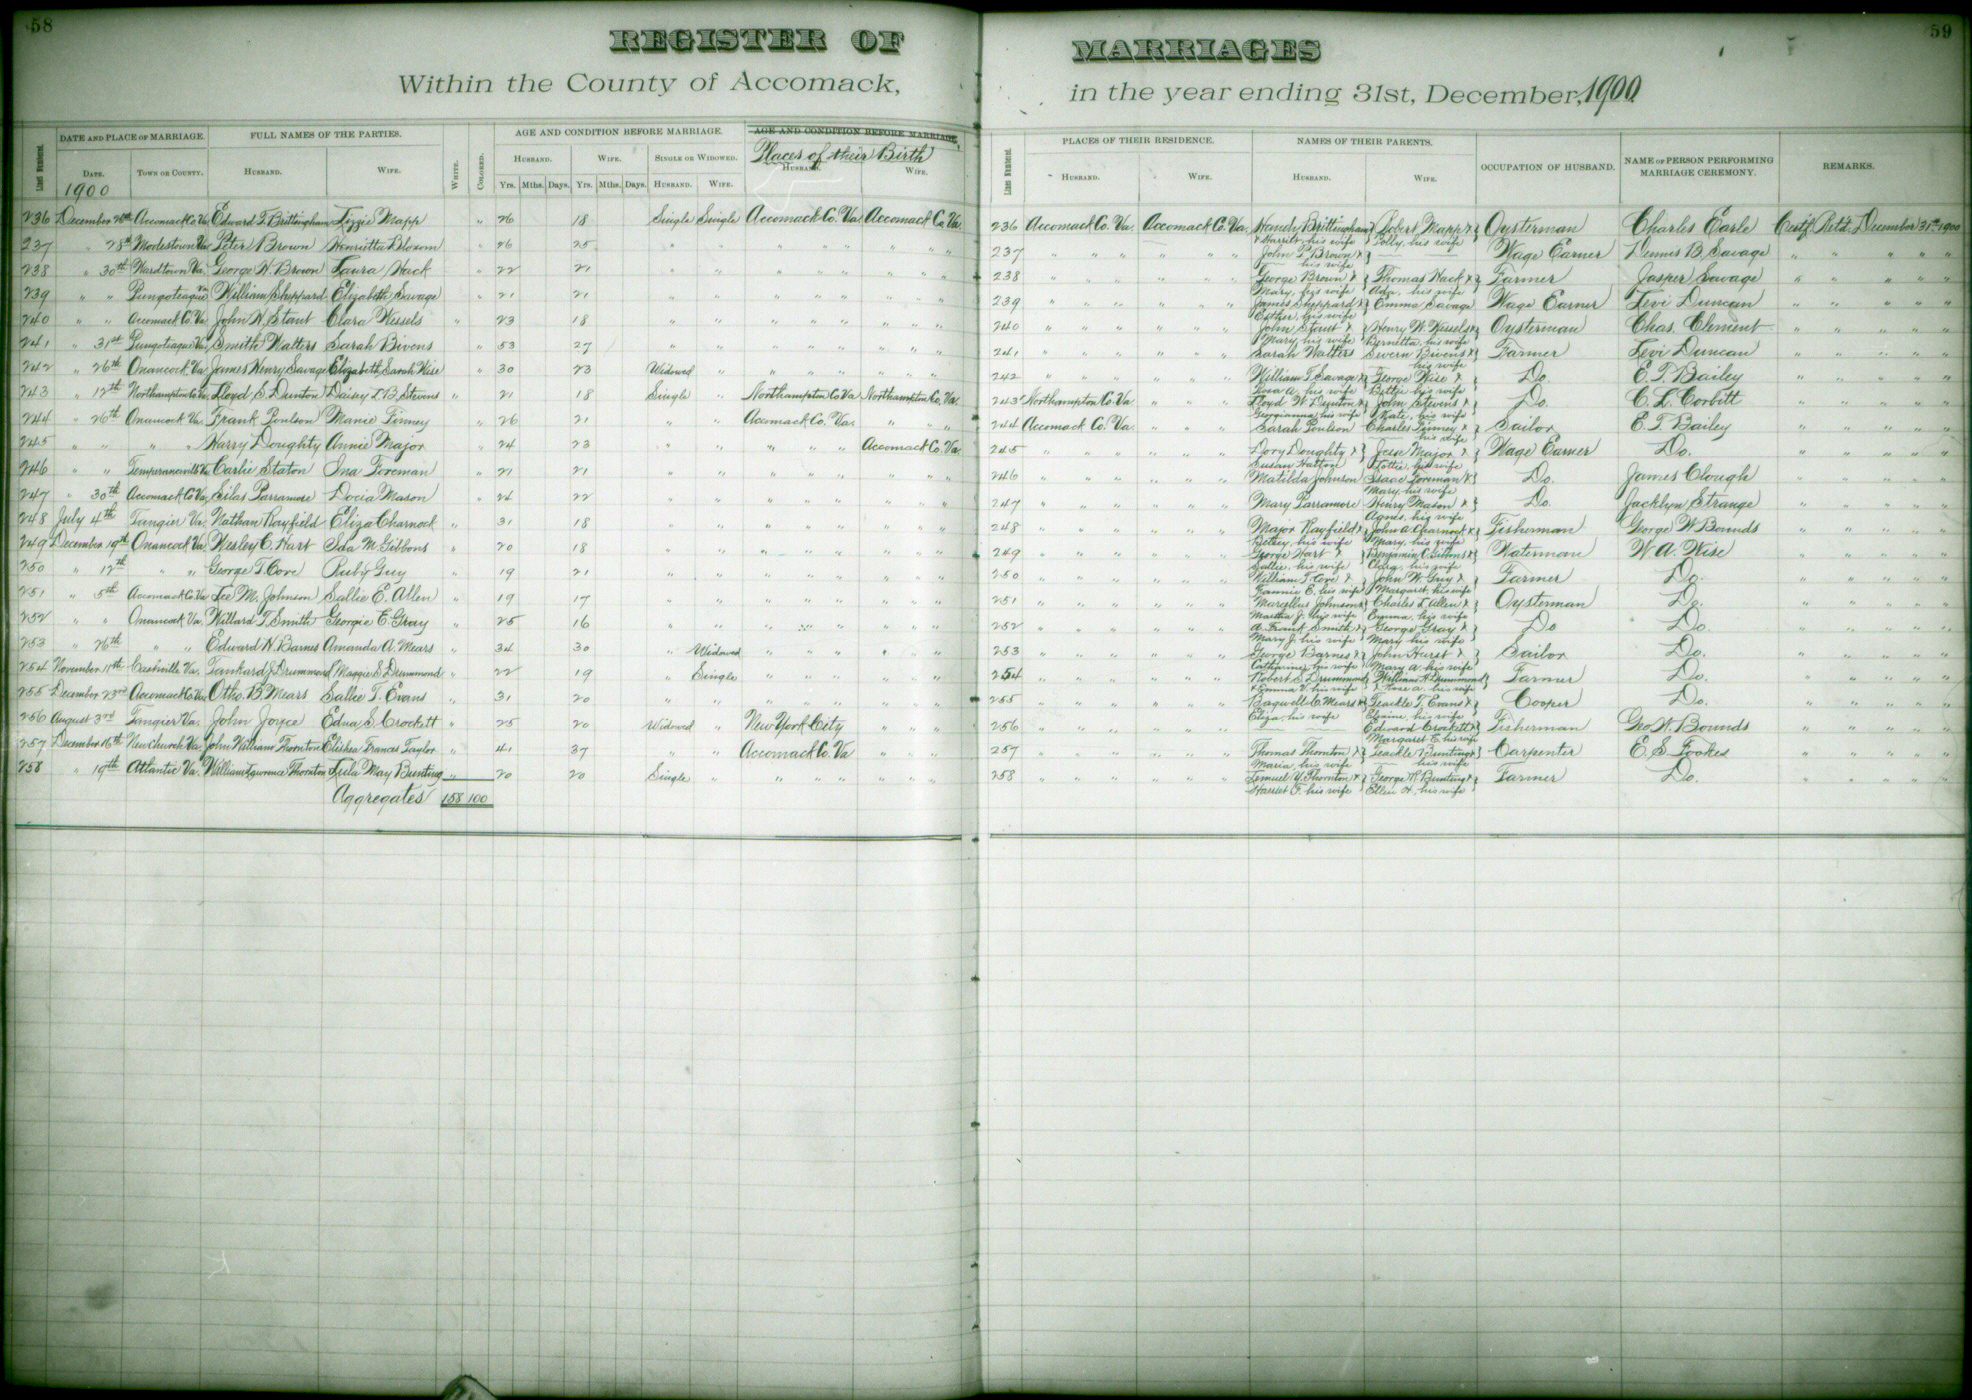 58
REGISTER OF
Within the County of Accomack,
DATE AND PLACE OF MARRIAGE. FULL NAMES OF THE PARTIES. AGE AND CONDITION BEFORE MARRIAGE. AGE AND CONDITION BEFORE MARRIAGE,
Places of their Birth
Line Numbers. DATE. TOWN OR COUNTY. HUSBAND. WIFE. WHITE. COLORED. HUSBAND. WIFE. SINGLE OR WIDOWED. HUSBAND. WIFE.
1900 Yrs. Mths. Days. Yrs. Mths. Days. HUSBAND. WIFE.
236 December 26th Accomack Co. Va. Edward T. Brittingham Lizzie Mapp " 26 18 Single Single Accomack Co. Va. Accomack Co. Va.
237 " 28th Modestown Va. Peter Brown Henrietta Bloxom " 26 25 " " " " " " " "
238 " 30th Wardtown Va. George W. Brown Laura Wack " 22 21 " " " " " " " "
239 " " Pungoteague Va. William Sheppard Elizabeth Savage " 21 21 " " " " " " " "
240 " " Accomack Co. Va. John W. Stant Clara Wessels " 23 18 " " " " " " " "
241 " 31st Pungoteague Va. Smith Walters Sarah Bivens " 53 27 " " " " " " " "
242 " 26th Onancock Va. James Henry Savage Elizabeth Sarah Wise " 30 23 Widowed " " " " " " "
243 " 12th Northampton Co. Va. Lloyd S. Dunton Daisey L. B. Stevens " 21 18 Single " Northampton Co. Va. Northampton Co. Va.
244 " 26th Onancock Va. Frank Poulson Manie Finney " 26 21 " " Accomack Co. Va. " " "
245 " " " " Harry Doughty Annie Major " 24 23 " " " " " Accomack Co. Va.
246 " " Temperanceville Va. Carlie Staton Ina Foreman " 21 21 " " " " " " " "
247 " 30th Accomack Co. Va. Silas Parramore Docia Mason " 24 22 " " " " " " " "
248 July 4th Tangier Va. Nathan Rayfield Eliza Charnock " 31 18 " " " " " " " "
249 December 19th Onancock Va. Wesley C. Hart Ida M. Gibbons " 20 18 " " " " " " " "
250 " 12th " " George T. Core Ruby Guy " 19 21 " " " " " " " "
251 " 5th Accomack Co. Va. Lee M. Johnson Sallie E. Allen " 19 17 " " " " " " " "
252 " " Onancock Va. Willard T. Smith Georgie E. Gray " 25 16 " " " " " " " "
253 " 26th " " Edward H. Barnes Amanda A. Mears " 34 30 " Widowed " " " " " "
254 November 11th Cashville Va. Tankard J. Drummond Maggie S. Drummond " 22 19 " Single " " " " " "
255 December 23rd Accomack Co. Va. Otho. B. Mears Sallie T. Evans " 31 20 " " " " " " " "
256 August 3rd Tangier Va. John Joyce Edna S. Crockett " 25 20 Widowed " New York City " " "
257 December 16th New Church Va. John William Thornton Elishea Frances Taylor " 41 37 " " Accomack Co. Va " " "
258 " 19th Atlantic Va. William Lawrence Thornton Lula May Bunting " 20 20 Single " " " " " " "
Aggregates 158 100
59
MARRIAGES
in the year ending 31st, December, 1900
Line Numbers. PLACES OF THEIR RESIDENCE. NAMES OF THEIR PARENTS. OCCUPATION OF HUSBAND. NAME OF PERSON PERFORMING MARRIAGE CEREMONY. REMARKS.
HUSBAND. WIFE. HUSBAND. WIFE.
236 Accomack Co. Va. Accomack Co. Va. Handy Brittingham Robert Mapp & Oysterman Charles Earle Certf. Ret'd. December 31st 1900
& Harriet, his wife Polly, his wife
237 " " " " " " John P. Brown & Wage Earner Dennis B. Savage " " " " "
his wife
238 " " " " " " George Brown & Thomas Wack & Farmer Jasper Savage " " " " "
Mary, his wife Ada, his wife
239 " " " " " " James Sheppard & Emma Savage Wage Earner Levi Duncan " " " " "
Esther, his wife
240 " " " " " " John Stant & Henry W. Wessels & Oysterman Chas. Clement " " " " "
Mary, his wife Bernetta, his wife
241 " " " " " " Sarah Walters Severn Bivens & Farmer Levi Duncan " " " " "
his wife
242 " " " " " " William T. Savage & George Wise & Do. E. T. Bailey " " " " "
Rosa A., his wife Bettie, his wife
243 Northampton Co. Va. " " " Lloyd W. Dunton & John Stevens & Do. C. L. Corbitt " " " " "
Georgianna, his wife Kate, his wife
244 Accomack Co. Va. " " " Sarah Poulson Charles Finney & Sailor E. T. Bailey " " " " "
his wife
245 " " " " " " Dory Doughty & Jesse Major & Wage Earner Do. " " " " "
Susan Hatton Lottie, his wife
246 " " " " " " Matilda Johnson Isaac Foreman & Do. James Clough " " " " "
Mary, his wife
247 " " " " " " Mary Parramore Henry Mason & Do. Jacklyn Strange " " " " "
Agnes, his wife
248 " " " " " " Major Rayfield & John A. Charnock & Fisherman George W. Bounds " " " " "
Betsey, his wife Mary, his wife
249 " " " " " " George Hart & Benjamin C. Gibbons & Waterman W. A. Wise " " " " "
Sallie, his wife Clara, his wife
250 " " " " " " William T. Core & John W. Guy & Farmer Do. " " " " "
Fannie E. his wife Margaret, his wife
251 " " " " " " Marcellus Johnson & Charles T. Allen & Oysterman Do. " " " " "
Martha J. his wife Emma, his wife
252 " " " " " " A. Frank Smith & George Gray & Do Do. " " " " "
Mary J. his wife Mary, his wife
253 " " " " " " George Barnes & John Hurst & Sailor Do. " " " " "
Catharine, his wife Mary A. his wife
254 " " " " " " Robert S. Drummond William H. Drummond & Farmer Do. " " " " "
& Emma V. his wife Rose A. his wife
255 " " " " " " Bagwell C. Mears & Teackle T. Evans & Cooper Do. " " " " "
Eliza, his wife his wife
256 " " " " " " Edward Crockett & Fisherman Geo. W. Bounds " " " " "
Margaret E. his wife
257 " " " " " " Thomas Thornton & Teackle Bunting & Carpenter E. S. Fookes " " " " "
Maria, his wife his wife
258 " " " " " " Lemuel Y. Thornton & George W. Bunting & Farmer Do. " " " " "
Harriet F. his wife Ellen H., his wife